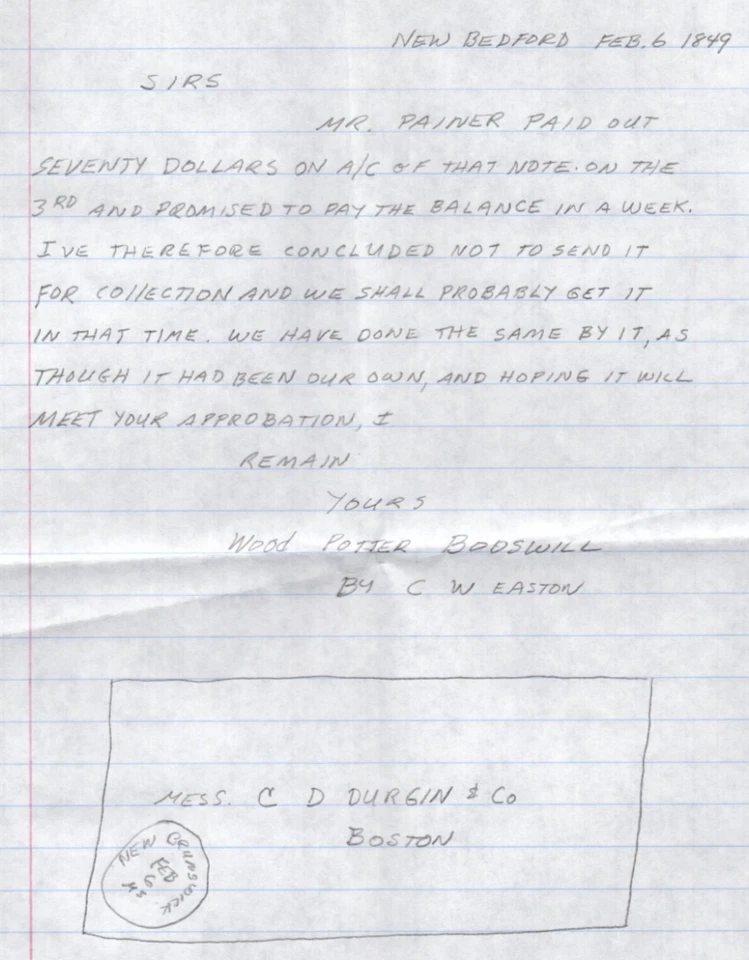 NEW BEDFORD FEB. 6 1849
SIRS
MR. PAINER PAID OUT
SEVENTY DOLLARS ON A/C OF THAT NOTE. ON THE
3RD AND PROMISED TO PAY THE BALANCE IN A WEEK.
I'VE THEREFORE CONCLUDED NOT TO SEND IT
FOR COLLECTION AND WE SHALL PROBABLY GET IT
IN THAT TIME. WE HAVE DONE THE SAME BY IT, AS
THOUGH IT HAD BEEN OUR OWN, AND HOPING IT WILL
MEET YOUR APPROBATION, I
REMAIN
YOURS
Wood POTTER BODSWILL
BY C W EASTON
MESS. C D DURGIN & Co
BOSTON
NEW BRUNSWICK
FEB
6
MS.